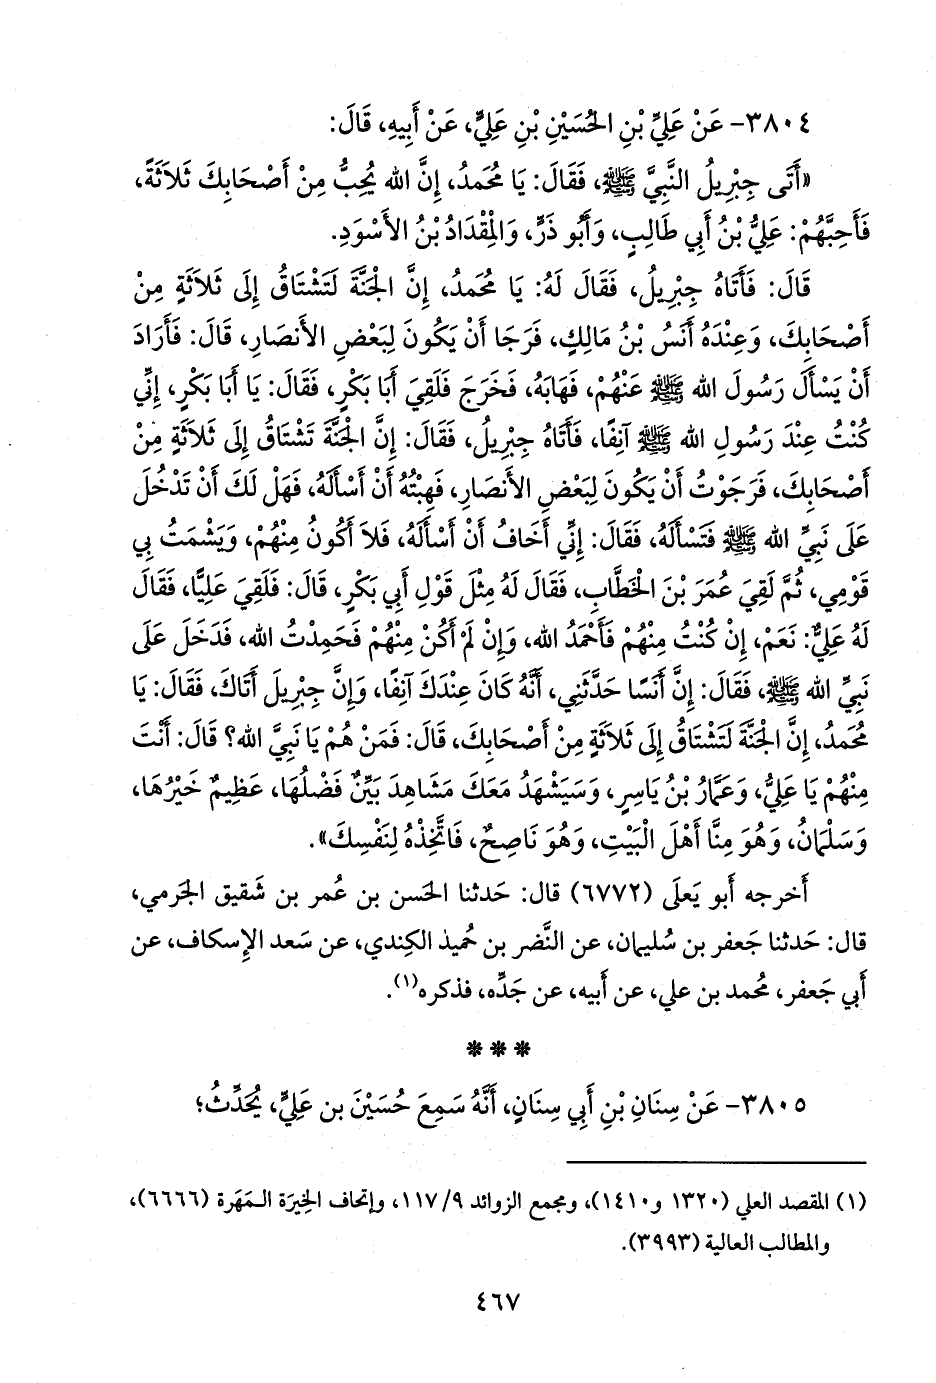 ٣٨٠٤- عَنْ عَلِيِّ بْنِ الحُسَيْنِ بْنِ عَلِيٍّ، عَنْ أَبِيهِ، قَالَ:
«أَتَى جِبْرِيلُ النَّبِيَّ ﷺ، فَقَالَ: يَا مُحَمدُ، إِنَّ الله يُحِبُّ مِنْ أَصْحَابِكَ ثَلاَثَةً،
فَأَحِبَّهُمْ: عَلِيُّ بْنُ أَبِي طَالِبٍ، وَأَبُو ذَرٍّ، وَالْمِقْدَادُ بْنُ الأَسْوَدِ.
قَالَ: فَأَتَاهُ جِبْرِيلُ، فَقَالَ لَهُ: يَا مُحَمدُ، إِنَّ الْجَنَّةَ لَتَشْتَاقُ إِلَى ثَلاَثَةٍ مِنْ
أَصْحَابِكَ، وَعِنْدَهُ أَنَسُ بْنُ مَالِكٍ، فَرَجَا أَنْ يَكُونَ لِبَعْضِ الأَنصَارِ، قَالَ: فَأَرَادَ
أَنْ يَسْأَلَ رَسُولَ الله ﷺ عَنْهُمْ، فَهَابَهُ، فَخَرَجَ فَلَقِيَ أَبَا بَكْرٍ، فَقَالَ: يَا أَبَا بَكْرٍ، إِنِّي
كُنْتُ عِنْدَ رَسُولِ الله ﷺ آنِفًا، فَأَتَاهُ جِبْرِيلُ، فَقَالَ: إِنَّ الْجَنَّةَ تَشْتَاقُ إِلَى ثَلاَثَةٍ مِنْ
أَصْحَابِكَ، فَرَجَوْتُ أَنْ يَكُونَ لِبَعْضِ الأَنصَارِ، فَهِبْتُهُ أَنْ أَسْأَلَهُ، فَهَلْ لَكَ أَنْ تَدْخُلَ
عَلَى نَبِيِّ الله ﷺ فَتَسْأَلَهُ، فَقَالَ: إِنِّي أَخَافُ أَنْ أَسْأَلَهُ، فَلاَ أَكُونُ مِنْهُمْ، وَيَشْمَتُ بِي
قَوْمِي، ثُمَّ لَقِيَ عُمَرَ بْنَ الخَطَّابِ، فَقَالَ لَهُ مِثْلَ قَوْلِ أَبِي بَكْرٍ، قَالَ: فَلَقِيَ عَلِيًّا، فَقَالَ
لَهُ عَلِيٌّ: نَعَمْ، إِنْ كُنْتُ مِنْهُمْ فَأَحْمَدُ الله، وَإِنْ لَمْ أَكُنْ مِنْهُمْ فَحَمِدْتُ الله، فَدَخَلَ عَلَى
نَبِيِّ الله ﷺ، فَقَالَ: إِنَّ أَنَسًا حَدَّثَنِي، أَنَّهُ كَانَ عِنْدَكَ آنِفًا، وَإِنَّ جِبْرِيلَ أَتَاكَ، فَقَالَ: يَا
مُحَمدُ، إِنَّ الْجَنَّةَ لَتَشْتَاقُ إِلَى ثَلاَثَةٍ مِنْ أَصْحَابِكَ، قَالَ: فَمَنْ هُمْ يَا نَبِيَّ الله؟ قَالَ: أَنْتَ
مِنْهُمْ يَا عَلِيُّ، وَعَمَّارُ بْنُ يَاسِرٍ، وَسَيَشْهَدُ مَعَكَ مَشَاهِدَ بَيِّنٌ فَضْلُهَا، عَظِيمٌ خَيْرُهَا،
وَسَلْمَانُ، وَهُوَ مِنَّا أَهْلَ الْبَيْتِ، وَهُوَ نَاصِحٌ، فَاتَّخِذْهُ لِنَفْسِكَ».
أَخرجه أَبو يَعلَى (٦٧٧٢) قال: حَدثنا الحَسن بن عُمر بن شَقيق الجَرمي،
قال: حَدثنا جَعفر بن سُليمان، عن النَّضر بن حُميد الكِندي، عن سَعد الإِسكاف، عن
أَبي جَعفر، مُحمد بن علي، عن أَبيه، عن جَدِّه، فذكره(١).
***
٣٨٠٥- عَنْ سِنَانِ بْنِ أَبِي سِنَانٍ، أَنَّهُ سَمِعَ حُسَيْنَ بن عَلِيٍّ، يُحَدِّثُ؛
(١) المقصد العلي (١٣٢٠ و١٤١٠)، ومجمع الزوائد ٩/ ١١٧، وإتحاف الخِيرَة الـمَهَرة (٦٦٦٦)،
والمطالب العالية (٣٩٩٣).
٤٦٧